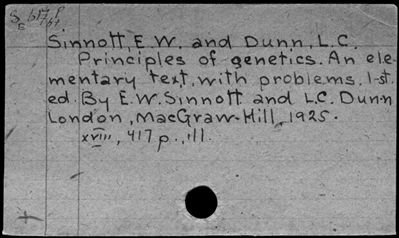 Sinnott, E.W. and Dunn, L.C.
Principles of genetics. An ele-
mentary text, with problems. 1-st.
ed. By E.W. Sinnott and L.C. Dunn
London, MacGraw-Hill, 1925.
xviii, 417 p., ill.